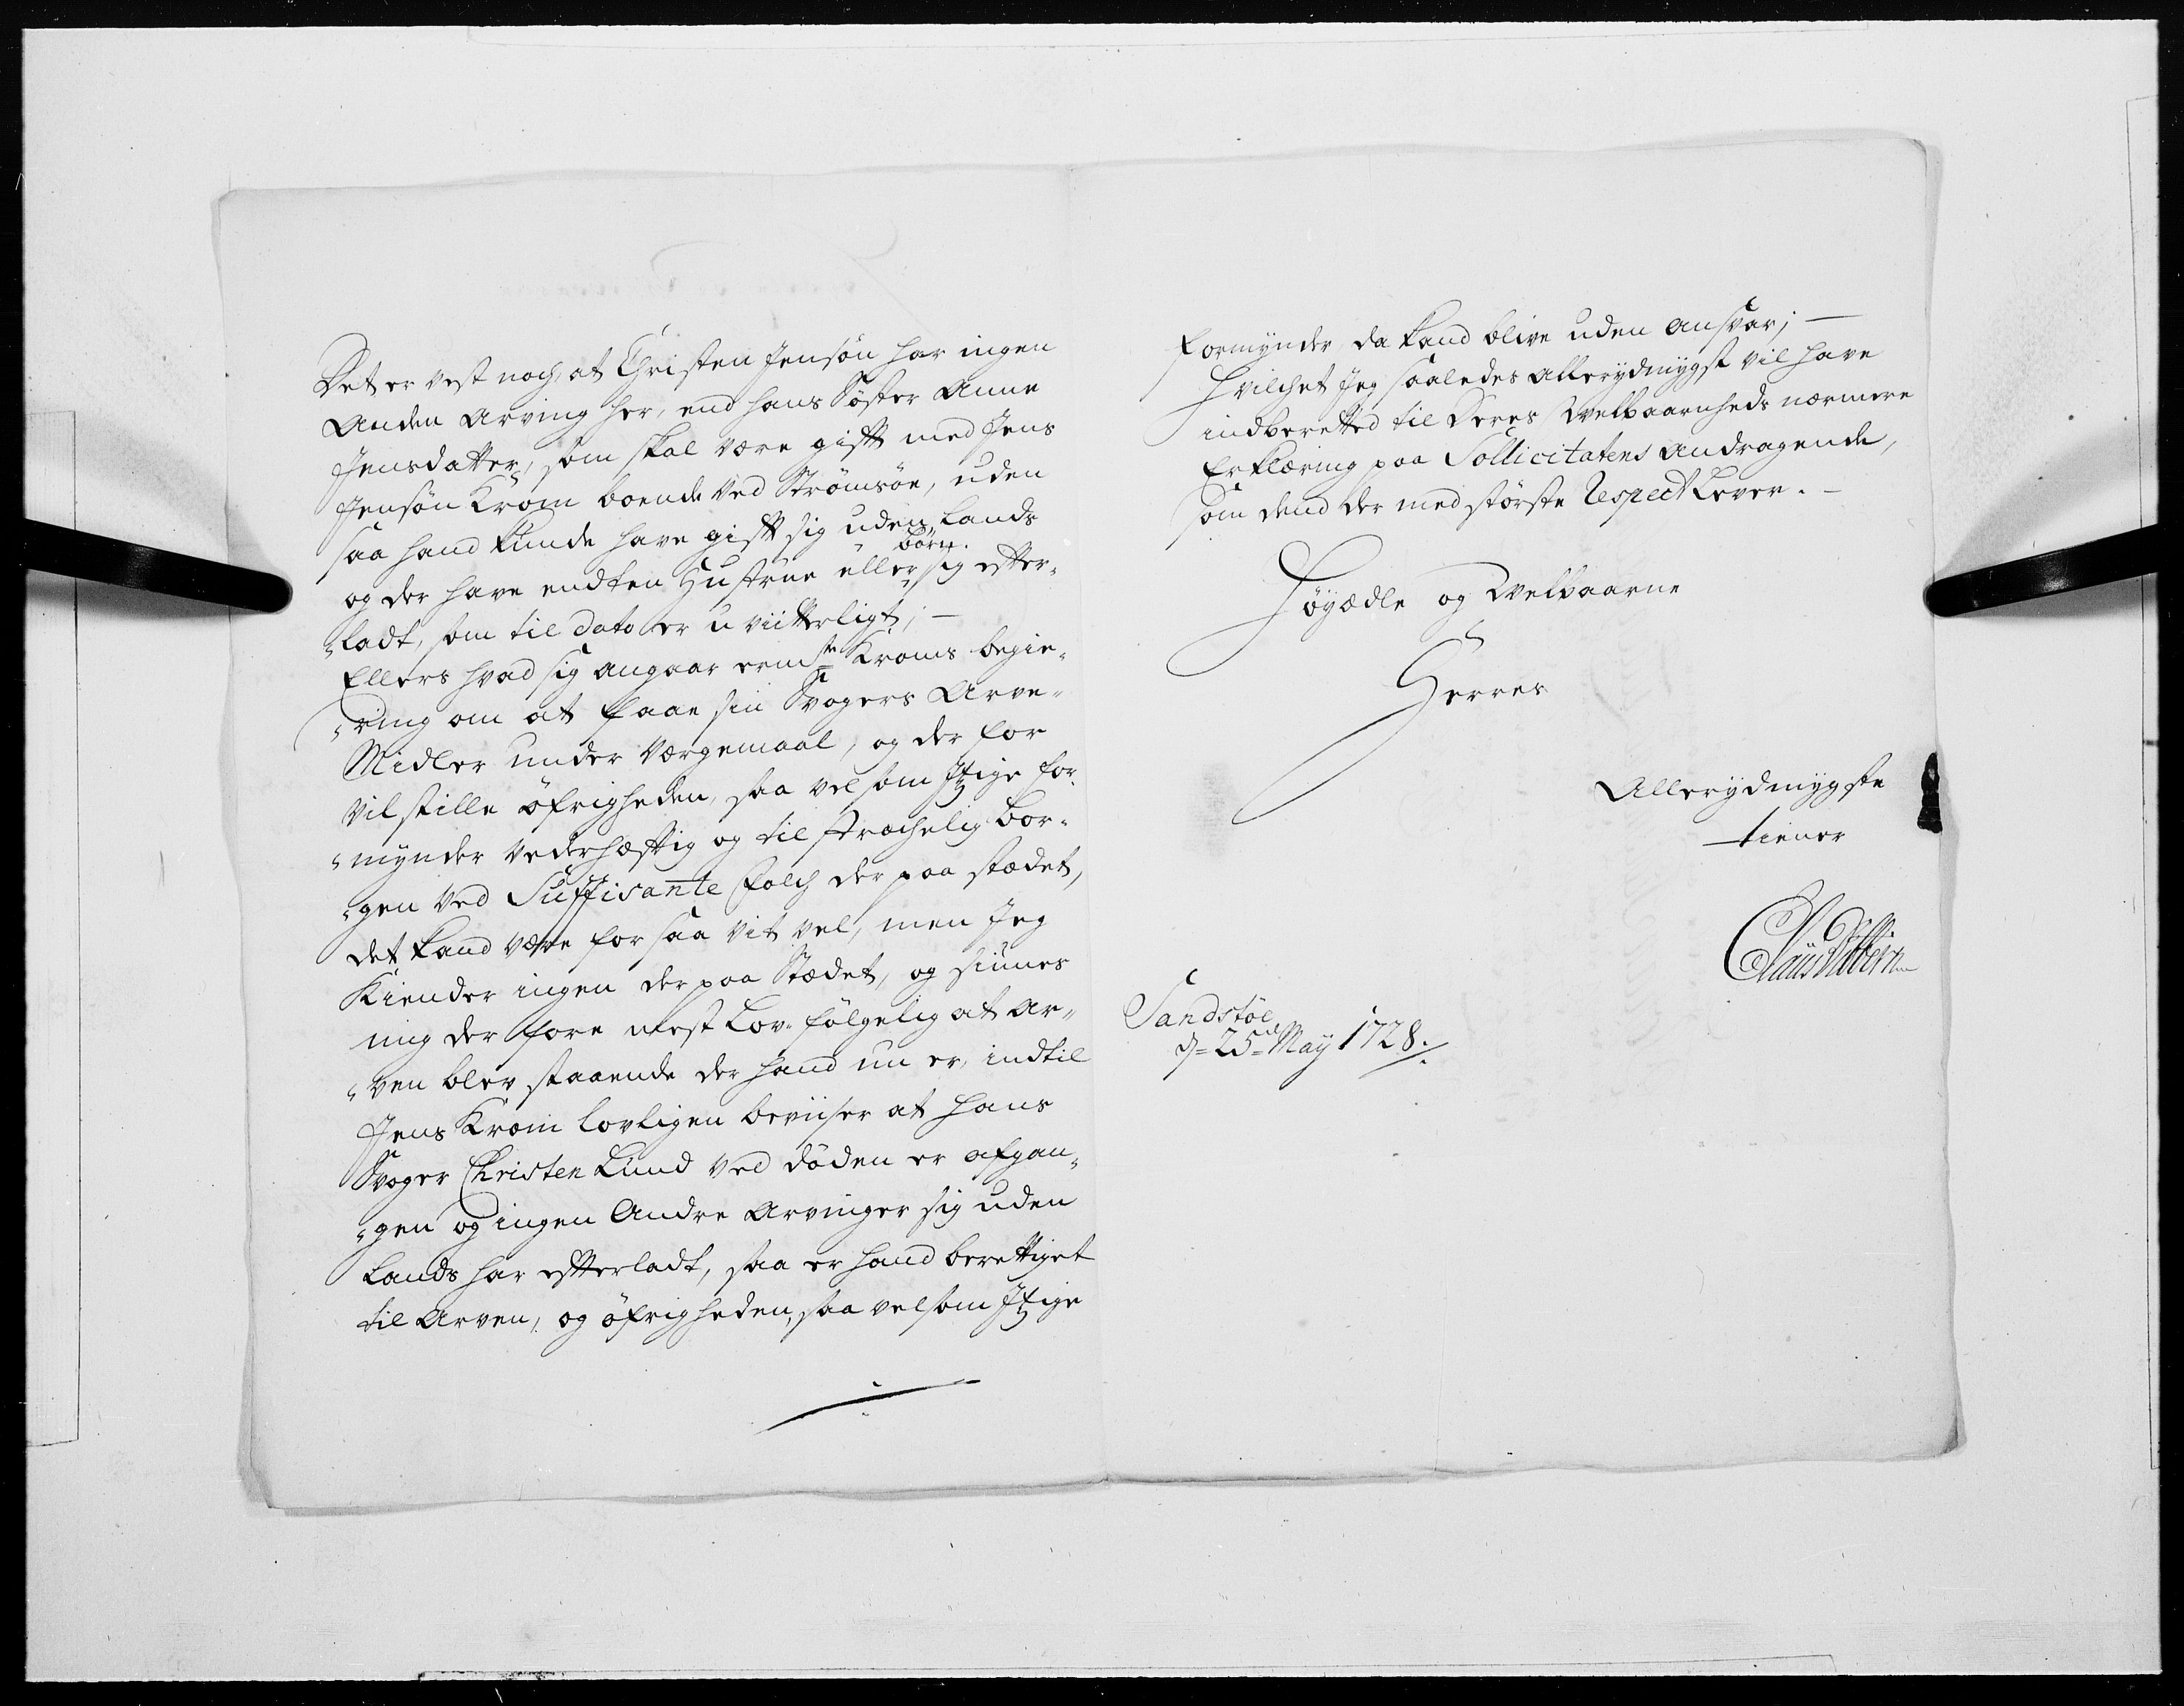 Det er vest noch, at Christen Jensøn har ingen
Anden Arving her, end hans Søster Anne
Jensdatter, som skal være gift med Jens
Jensøn Krom boende ved Strømsøe, uden
saa hand kunde have gift sig uden Lands
og der have endten Hustrue eller børn sig efter¬
„ladt, som til dato er uviitterligt; —
Ellers hvad sig angaar ermte Kroms begie¬
„ring om at faae sin Svogers Arve¬
Midler under Værgemaal, og der for
vil stille øfrigheden, saa vel som Itzige for¬
„mynder vederhæftig og tilstræchelig bor¬
„gen ved Suffisante folch der paa stædet,
det kand være for saa vit vel, men Jeg
Kiender ingen der paa Stædet, og siunes
mig der fore mest Lov-følgelig at Ar¬
„ven blev staaende der hand nu er, indtil
Jens Krom lovligen beviiser at hans
Svoger Christen Lund ved døden er afgan¬
„gen og ingen Andre Arvinger sig uden
Lands har efterladt, saa er hand berettiget
til Arven, og øfrigheden, saa vel som Itzige
formynder da kand blive uden ansvar; —
Hvilchet Jeg saaledes allerydmygst vil have
indberetted til Deres Welbaarenheds nærmere
Erklæring paa Sollicitatens Andragende,
som dend der med største Respect Lever. —
Høyædle og Welbaarne
Herres
Allerydmygste
tiener
Claus
Sandstøe
d= 25= May 1728.